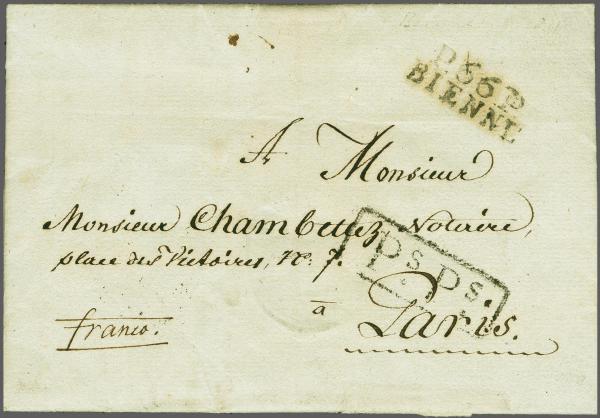 P66P
BIENNE
A Monsieur
Monsieur Chambettaz, Notaire,
place des Victoires, No. 7.
Ps.Ps.
à Paris.
franco.